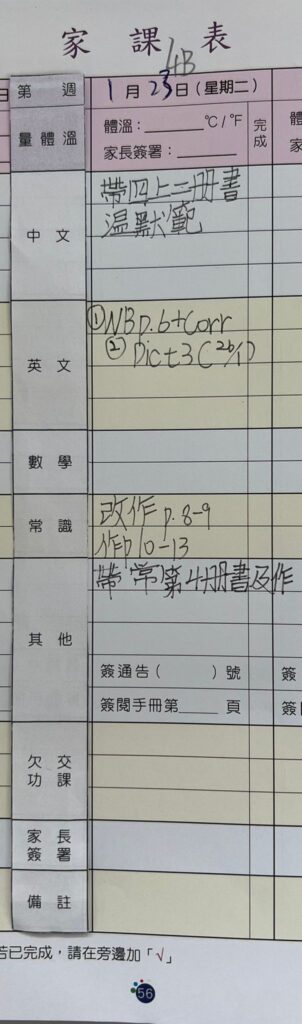 家課表
4B
第 週
1月23日(星期二)
量體溫
體溫:______°C/°F
家長簽署:______
完成
中文
帶四上二冊書
温默範
英文
①NB p.6+Corr
②Dict3(26/1)
數學
常識
改作 p.8-9
作p10-13
其他
帶常第4冊書及作
簽通告( )號
簽閱手冊第____頁
欠交功課
家長簽署
備註
若已完成,請在旁邊加「√」
56